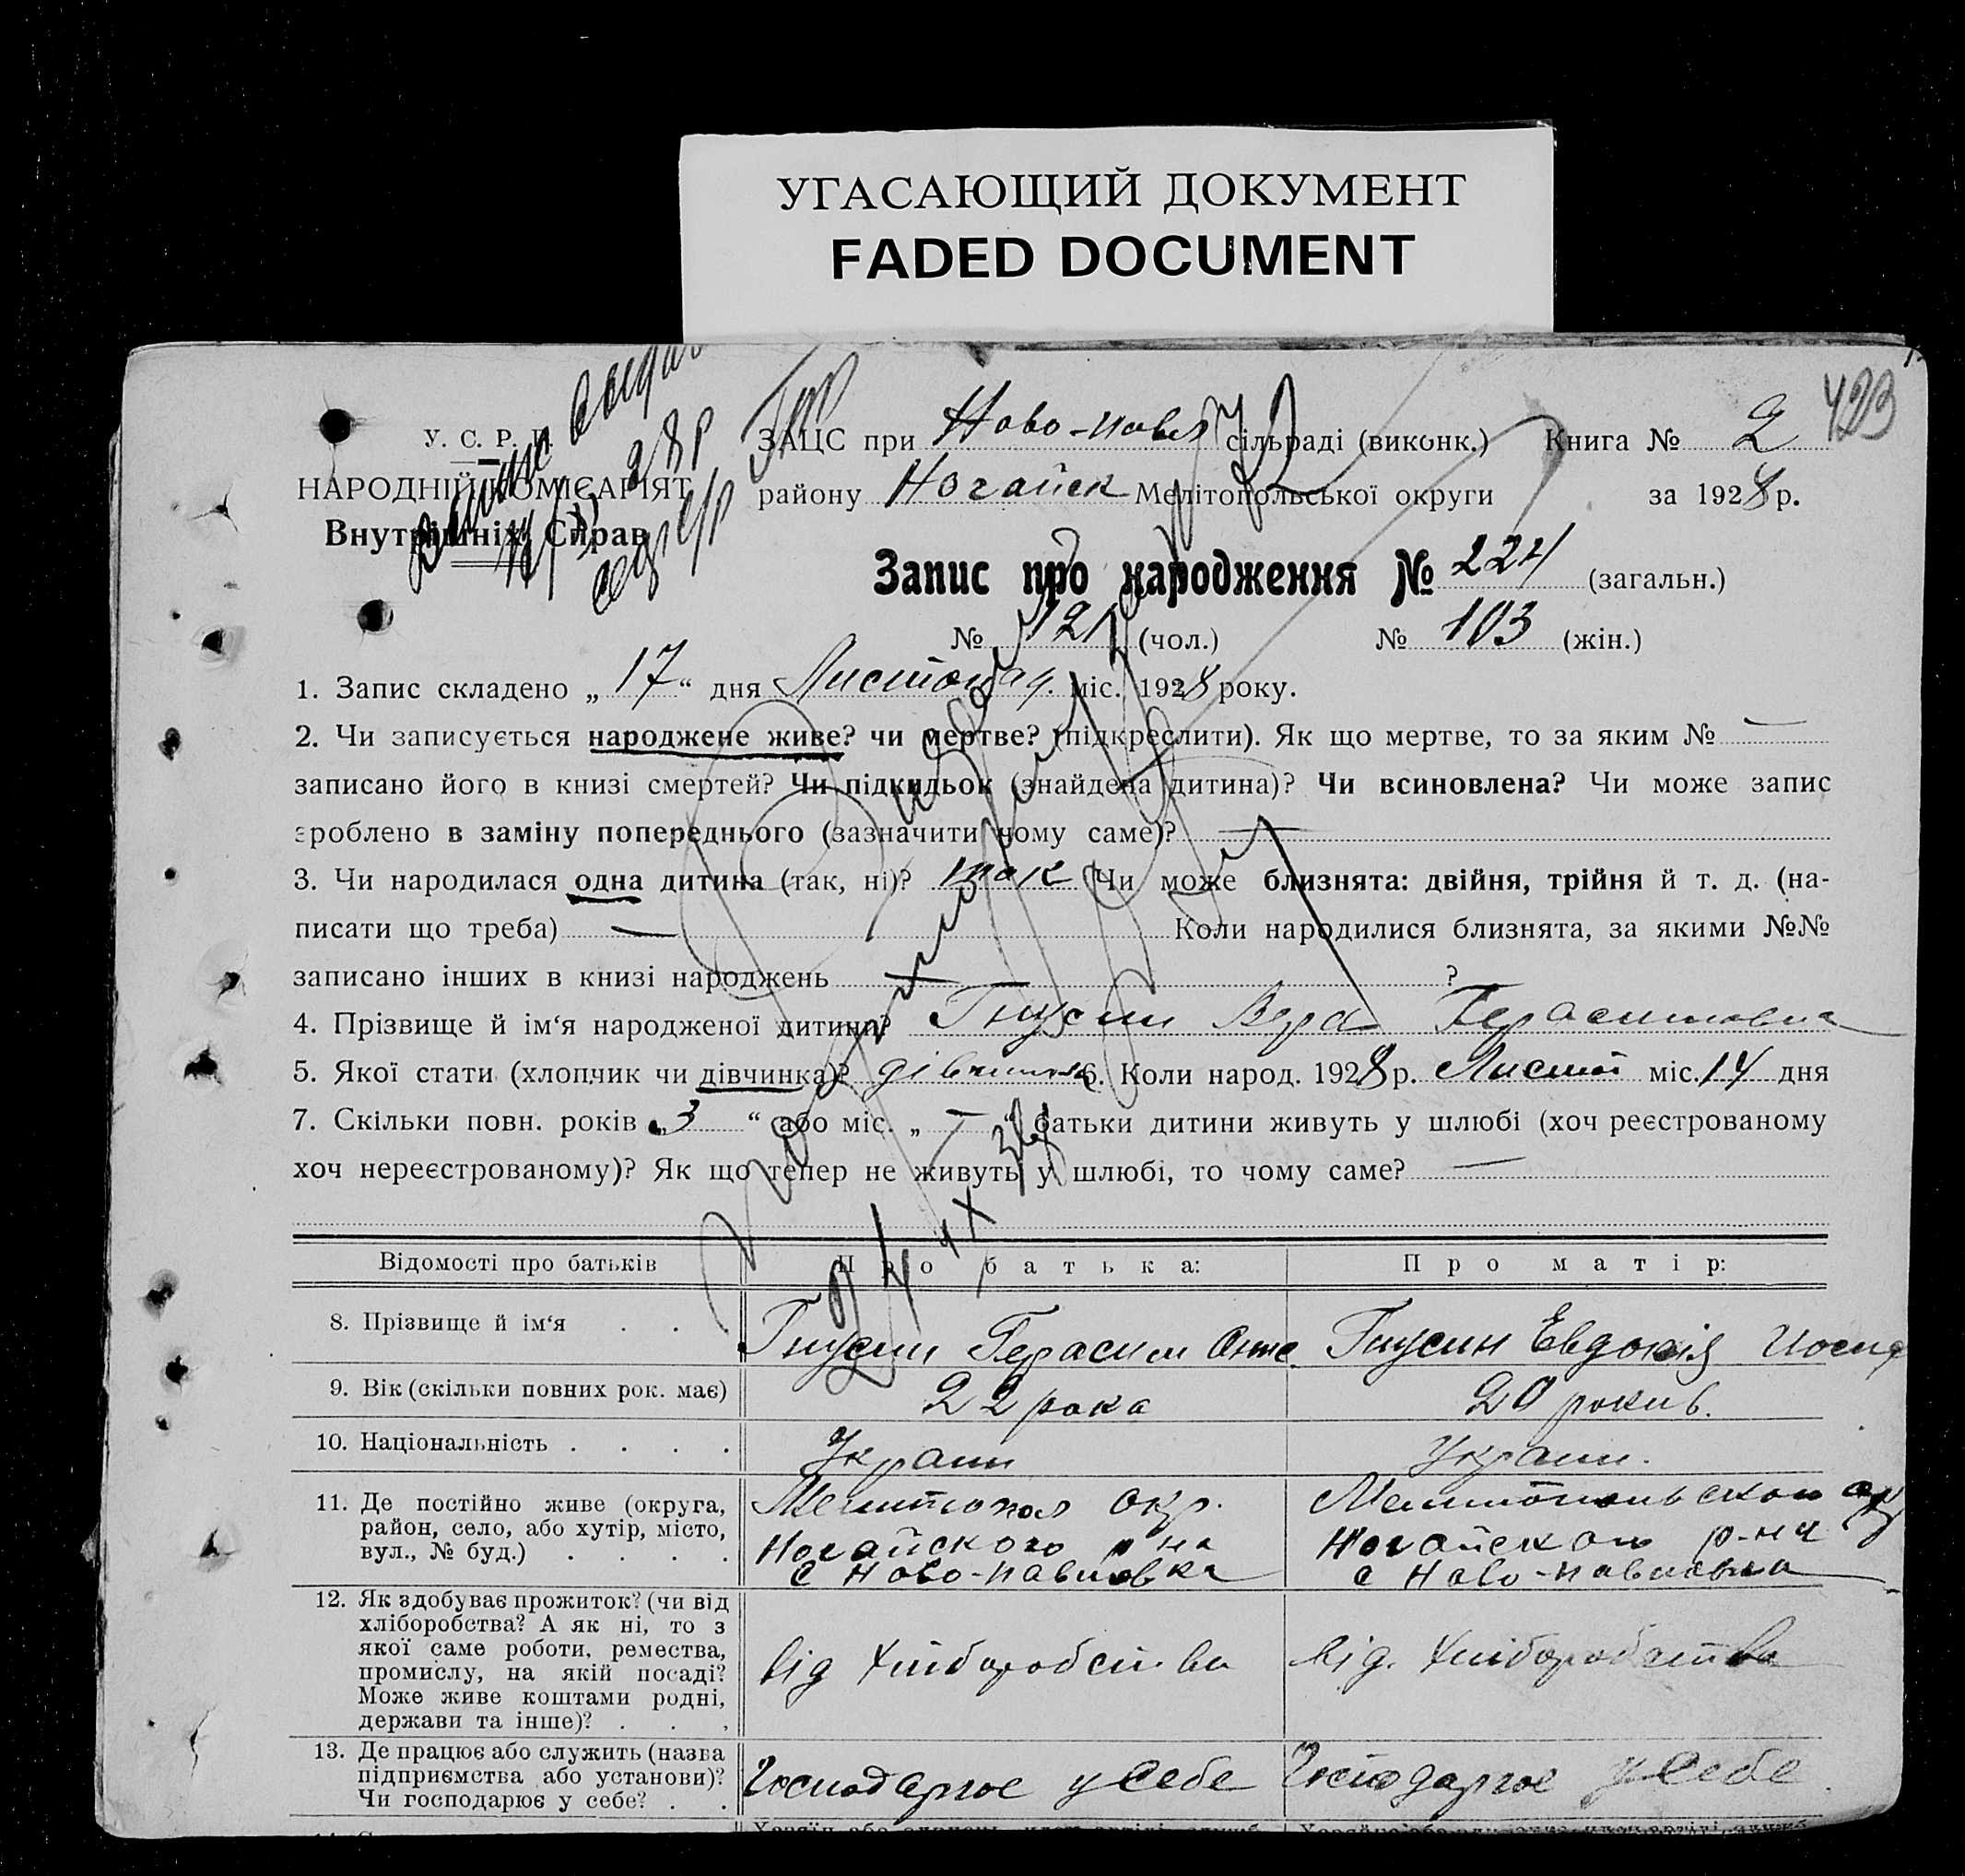 УГАСАЮЩИЙ ДОКУМЕНТ
FADED DOCUMENT
423
У. С. Р. Р.
НАРОДНІЙ КОМІСАРІЯТ
Внутрішніх Справ
28 р
ЗАЦС при Ново-павл сільраді (виконк.) Книга № 2
району Ногайск Мелітопольської округи за 1928 р.
Запис про народження № 224 (загальн.)
№ 121 (чол.) № 103 (жін.)
1. Запис складено „ 17 “ дня Листопад. міс. 1928 року.
2. Чи записується народжене живе? чи мертве? (підкреслити). Як що мертве, то за яким № —
записано його в книзі смертей? Чи підкидьок (знайдена дитина)? Чи всиновлена? Чи може запис
зроблено в заміну попереднього (зазначити чому саме)? —
3. Чи народилася одна дитина (так, ні)? так Чи може близнята: двійня, трійня й т. д. (на-
писати що треба) — Коли народилися близнята, за якими №№
записано інших в книзі народжень — ?
4. Прізвище й ім‘я народженої дитини? Гнусин Вера Герасимовна
5. Якої стати (хлопчик чи дівчинка)? дівчинка 6. Коли народ. 1928 р. Листоп міс. 14 дня
7. Скільки повн. років „ 3 “ або міс. „ — “ батьки дитини живуть у шлюбі (хоч реєстрованому
хоч нереєстрованому)? Як що тепер не живуть у шлюбі, то чому саме? —
Відомості про батьків Про батька: Про матір:
8. Прізвище й ім‘я . . . Гнусин Герасим Гнусин Евдокія Иосиф
9. Вік (скільки повних рок. має) 22 рока 20 рокив.
10. Національність . . . . Украин Украин.
11. Де постійно живе (округа, Мелитопол окр. Мелитопольского окр
район, село, або хутір, місто, Ногайского р на Ногайского р-на
вул., № буд.) . . . . с Ново-павловка с Ново-павловка
12. Як здобуває прожиток? (чи від
хліборобства? А як ні, то з
якої саме роботи, ремества, від хліборобства від. хліборобства
промислу, на якій посаді?
Може живе коштами родні,
держави та інше)? . . .
13. Де працює або служить (назва
підприємства або установи)? Господарює у себе Господарює у себе
Чи господарює у себе? . .